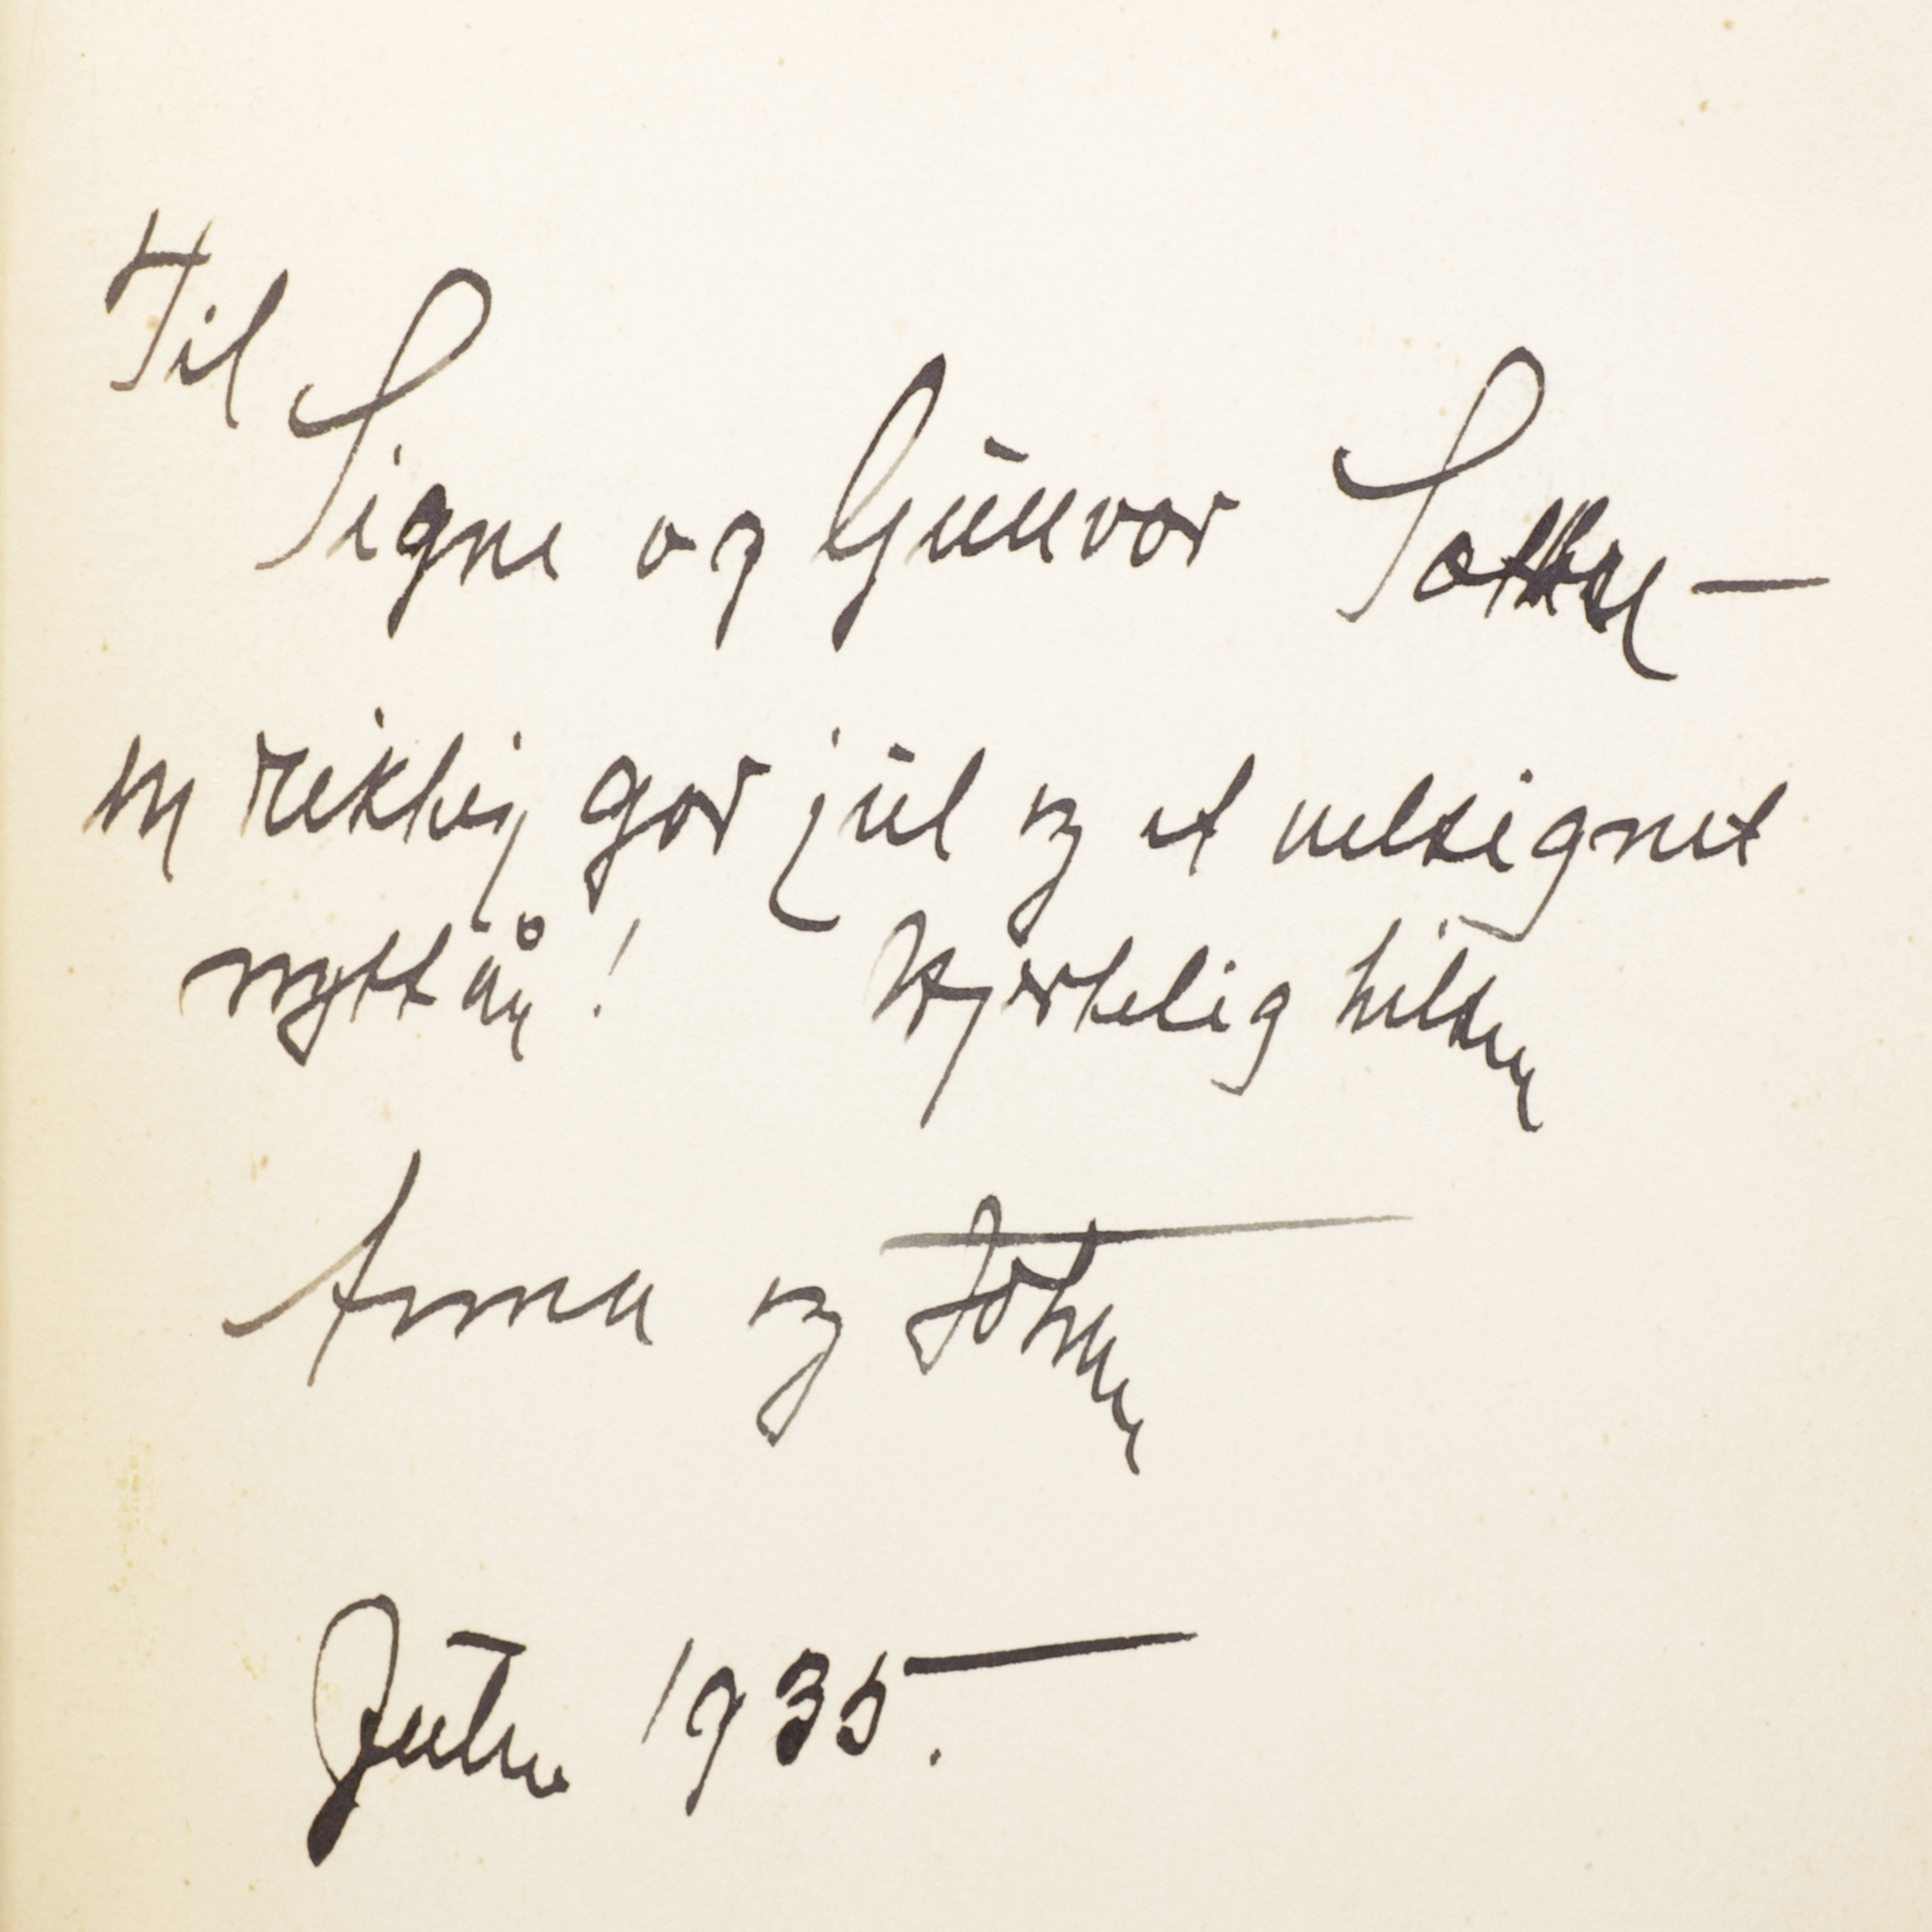 Til
Signe og Gunvor
en riktig god jul og et velsignet
nytt år! Hjertelig hilsen
Anna og Johan
Julen 1935.